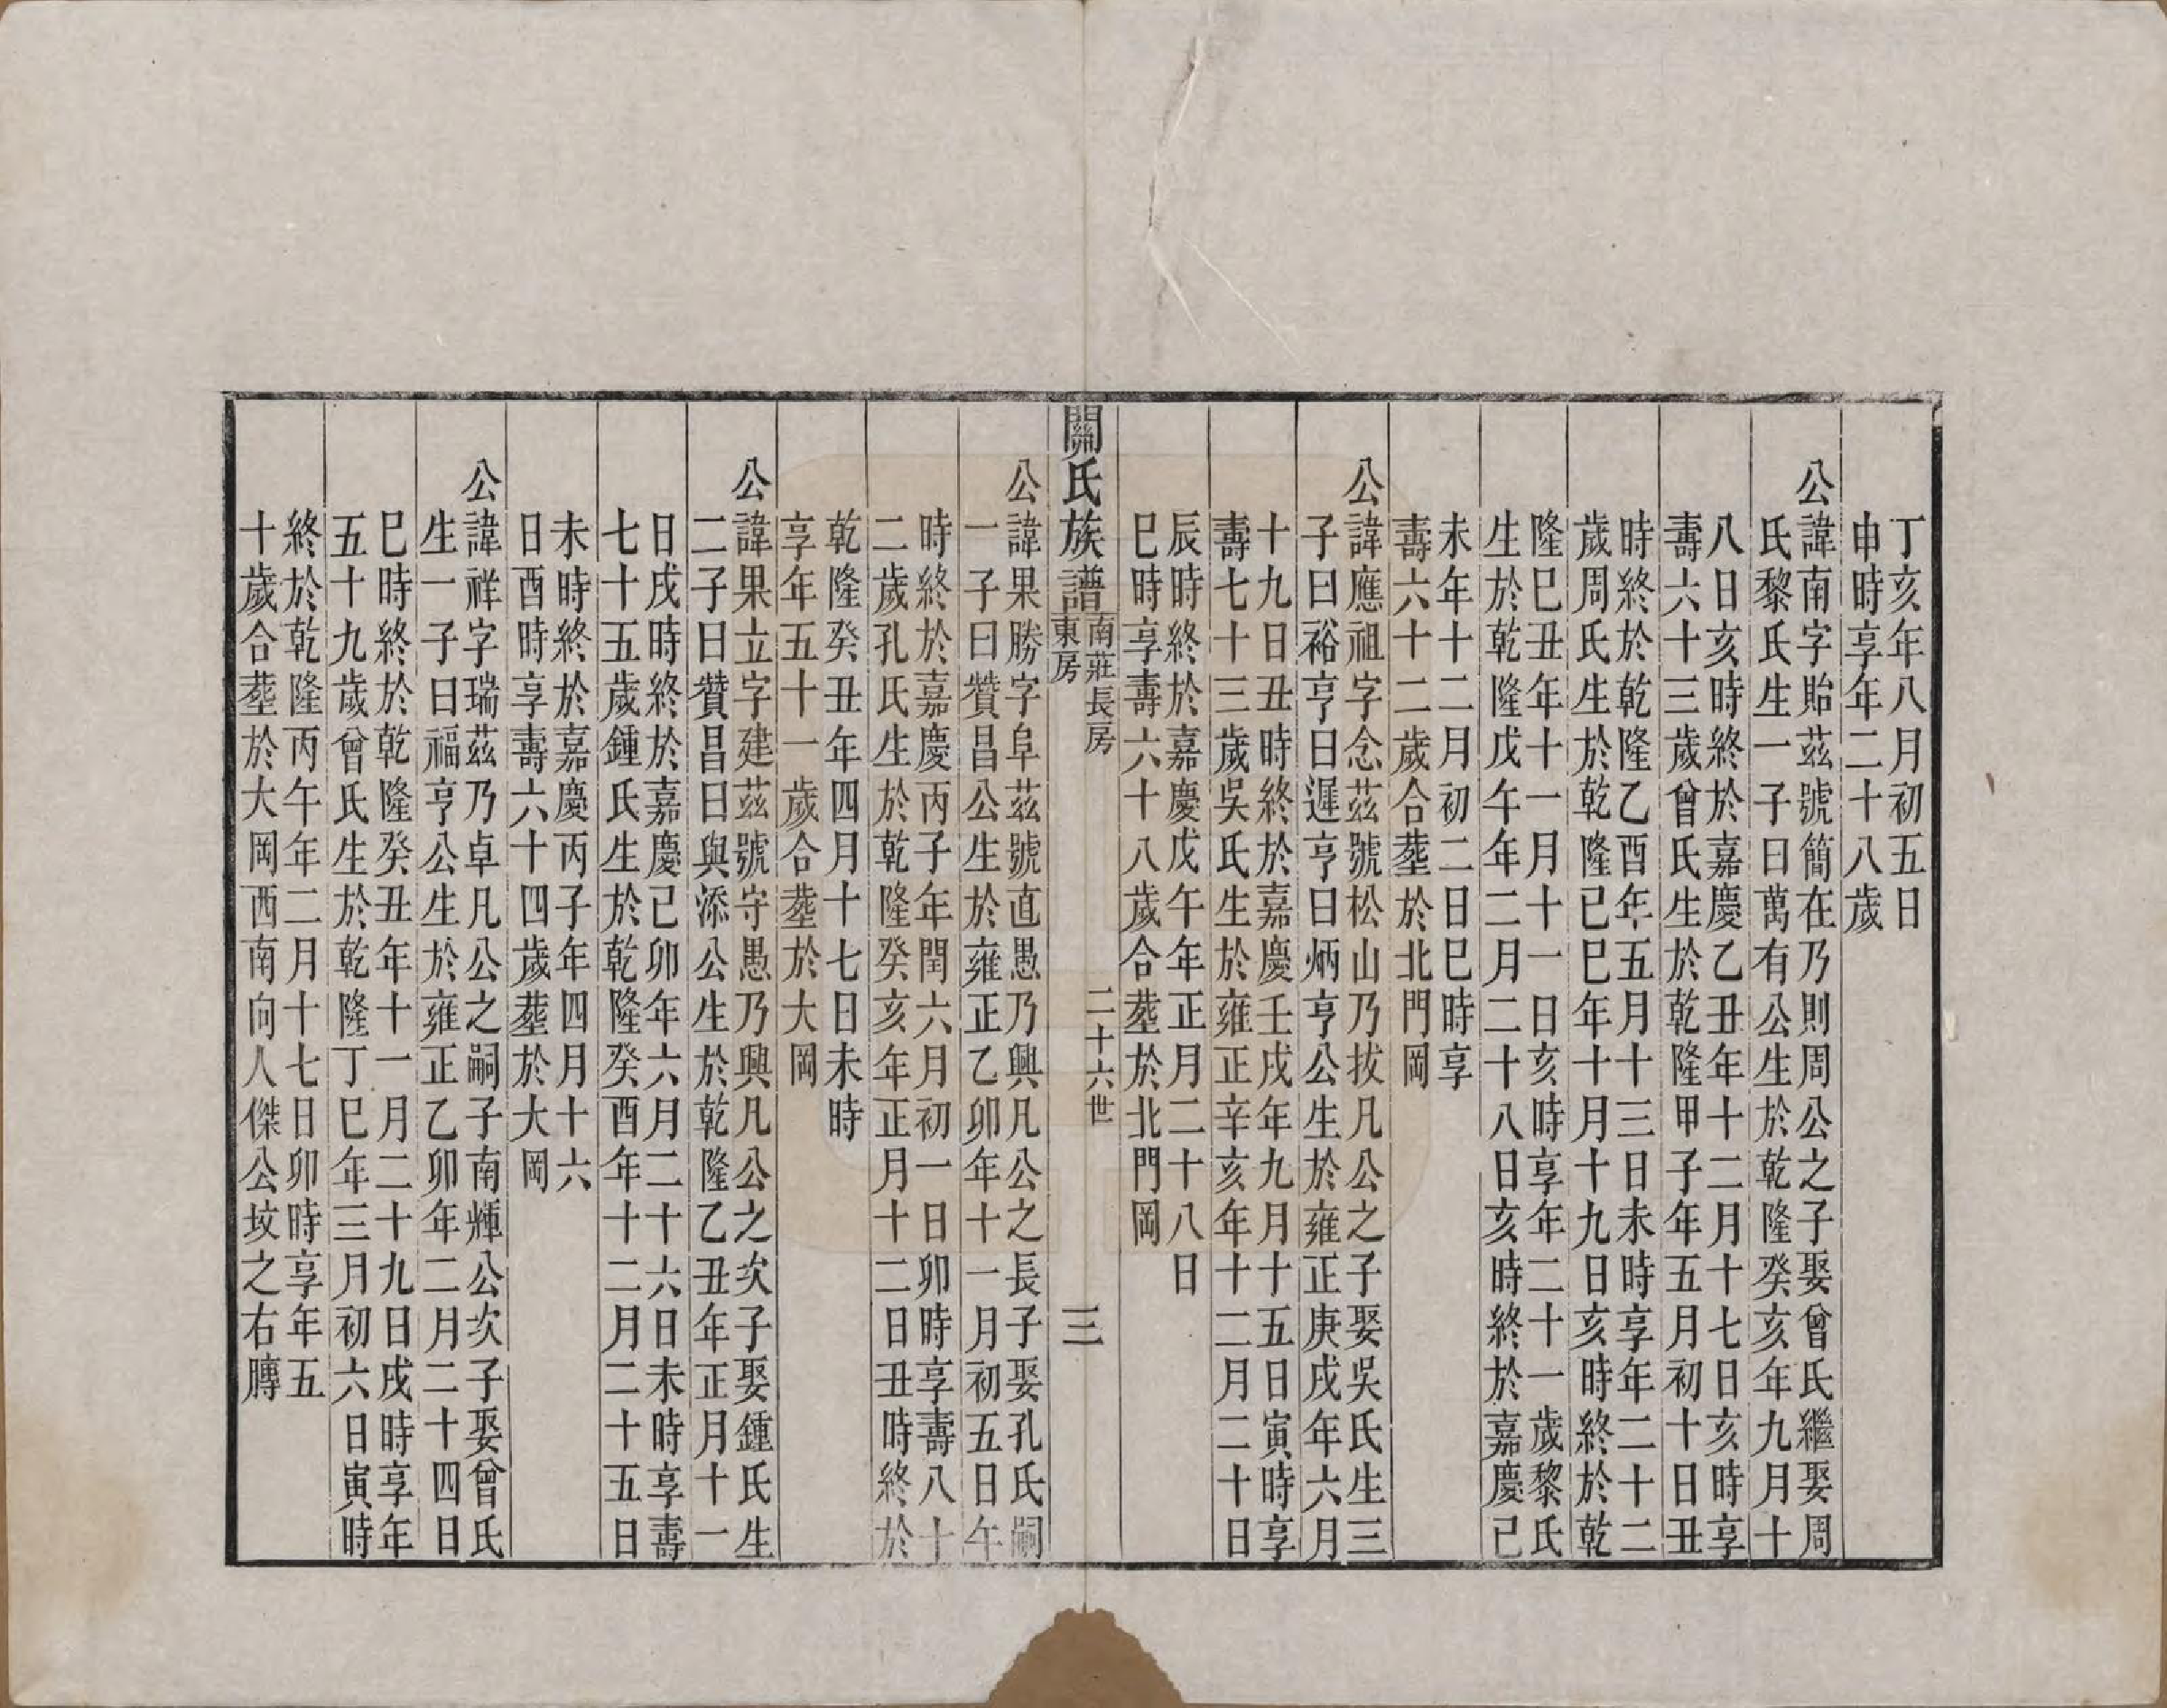 丁亥年八月初五日
申時享年二十八歲
公諱南字貽茲號簡在乃則周公之子娶曾氏繼娶周
氏黎氏生一子曰萬有公生於乾隆癸亥年九月十
八日亥時終於嘉慶乙丑年十二月十七日亥時享
壽六十三歲曾氏生於乾隆甲子年五月初十日丑
時終於乾隆乙酉年五月十三日未時享年二十二
歲周氏生於乾隆己巳年十月十九日亥時終於乾
隆巳丑年十一月十一日亥時享年二十一歲黎氏
生於乾隆戊午年二月二十八日亥時終於嘉慶己
未年十二月初二日巳時享
壽六十二歲合塟於北門岡
公諱應祖字念茲號松山乃拔凡公之子娶吳氏生三
子曰裕亨曰遲亨曰炳亨公生於雍正庚戌年六月
十九日丑時終於嘉慶壬戌年九月十五日寅時享
壽七十三歲吳氏生於雍正辛亥年十二月二十日
辰時終於嘉慶戊午年正月二十八日
巳時享壽六十八歲合塟於北門岡
關氏族譜
南莊長房
東房
二十六世
三
公諱果勝字阜茲號直愚乃興凡公之長子娶孔氏嗣
一子曰贊昌公生於雍正乙卯年十一月初五日午
時終於嘉慶丙子年閏六月初一日卯時享壽八十
二歲孔氏生於乾隆癸亥年正月十二日丑時終於
乾隆癸丑年四月十七日未時
享年五十一歲合塟於大岡
公諱果立字建茲號守愚乃興凡公之次子娶鍾氏生
二子曰贊昌曰與添公生於乾隆乙丑年正月十一
日戌時終於嘉慶己卯年六月二十六日未時享壽
七十五歲鍾氏生於乾隆癸酉年十二月二十五日
未時終於嘉慶丙子年四月十六
日酉時享壽六十四歲塟於大岡
公諱祥字瑞茲乃卓凡公之嗣子南輝公次子娶曾氏
生一子曰福亨公生於雍正乙卯年二月二十四日
巳時終於乾隆癸丑年十一月二十九日戌時享年
五十九歲曾氏生於乾隆丁巳年三月初六日寅時
終於乾隆丙午年二月十七日卯時享年五
十歲合塟於大岡西南向人傑公坟之右膞